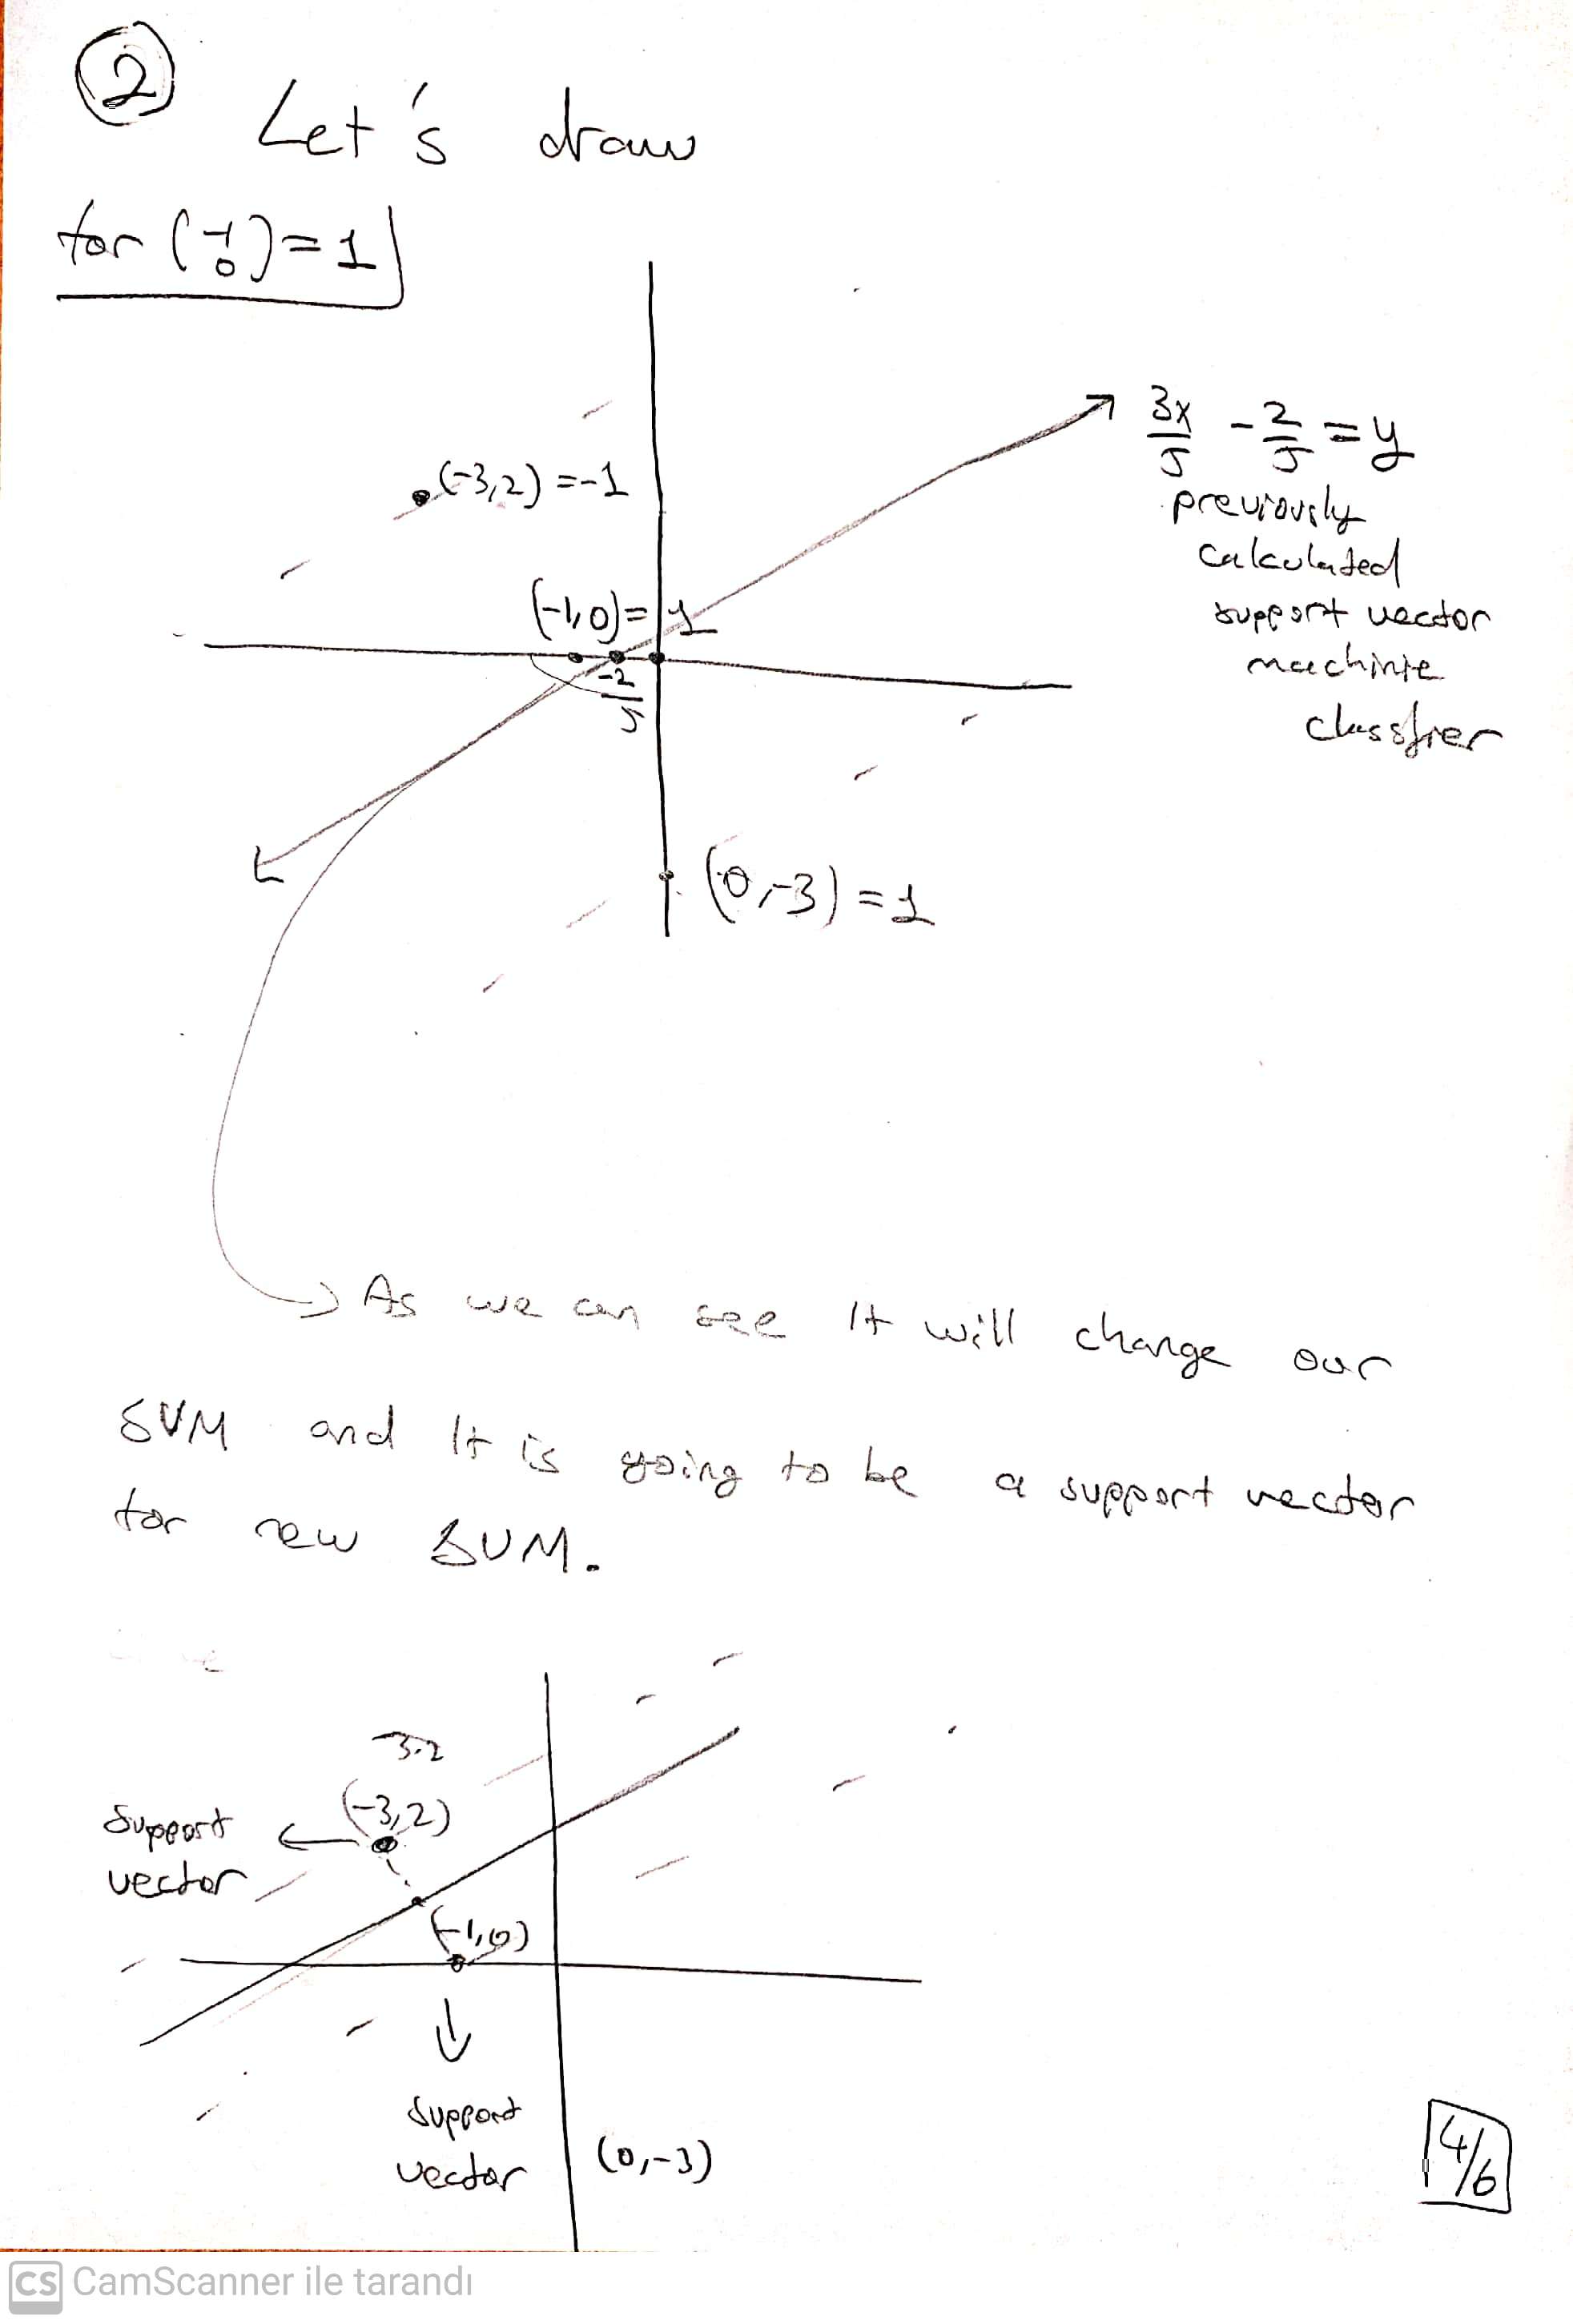 2
Let's draw
for (-1 0) = 1
3x/5 - 2/5 = y
previously
calculated
support vector
machine
classfier
(-3,2) = -1
(-1,0) = 1
-2/5
(0,-3) = 1
As we can see It will change our
SVM and It is going to be a support vector
for new SVM.
-3.2
(-3,2)
Support
vector
(-1,0)
Support
vector
(0,-3)
4/6
CS CamScanner ile tarandı